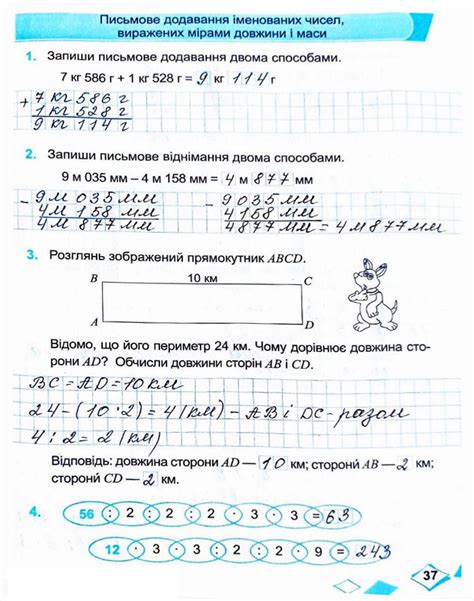 Письмове додавання іменованих чисел,
виражених мірами довжини і маси
1. Запиши письмове додавання двома способами.
7 кг 586 г + 1 кг 528 г = 9 кг 114 г
+ 7 кг 586 г
1 кг 528 г
9 кг 114 г
2. Запиши письмове віднімання двома способами.
9 м 035 мм – 4 м 158 мм = 4 м 877 мм
– 9 м 035 мм – 9035 мм
4 м 158 мм 4158 мм
4 м 877 мм 4877 мм = 4 м 877 мм
3. Розглянь зображений прямокутник ABCD.
B 10 км C
A D
Відомо, що його периметр 24 км. Чому дорівнює довжина сто-
рони AD? Обчисли довжини сторін AB і CD.
BC = AD = 10 км
24 – (10 · 2) = 4 (км) – AB і DC – разом
4 : 2 = 2 (км)
Відповідь: довжина сторони AD — 10 км; сторони AB — 2 км;
сторони CD — 2 км.
4. 56 : 2 : 2 : 2 · 3 · 3 = 63
12 · 3 · 3 : 2 : 2 · 9 = 243
37